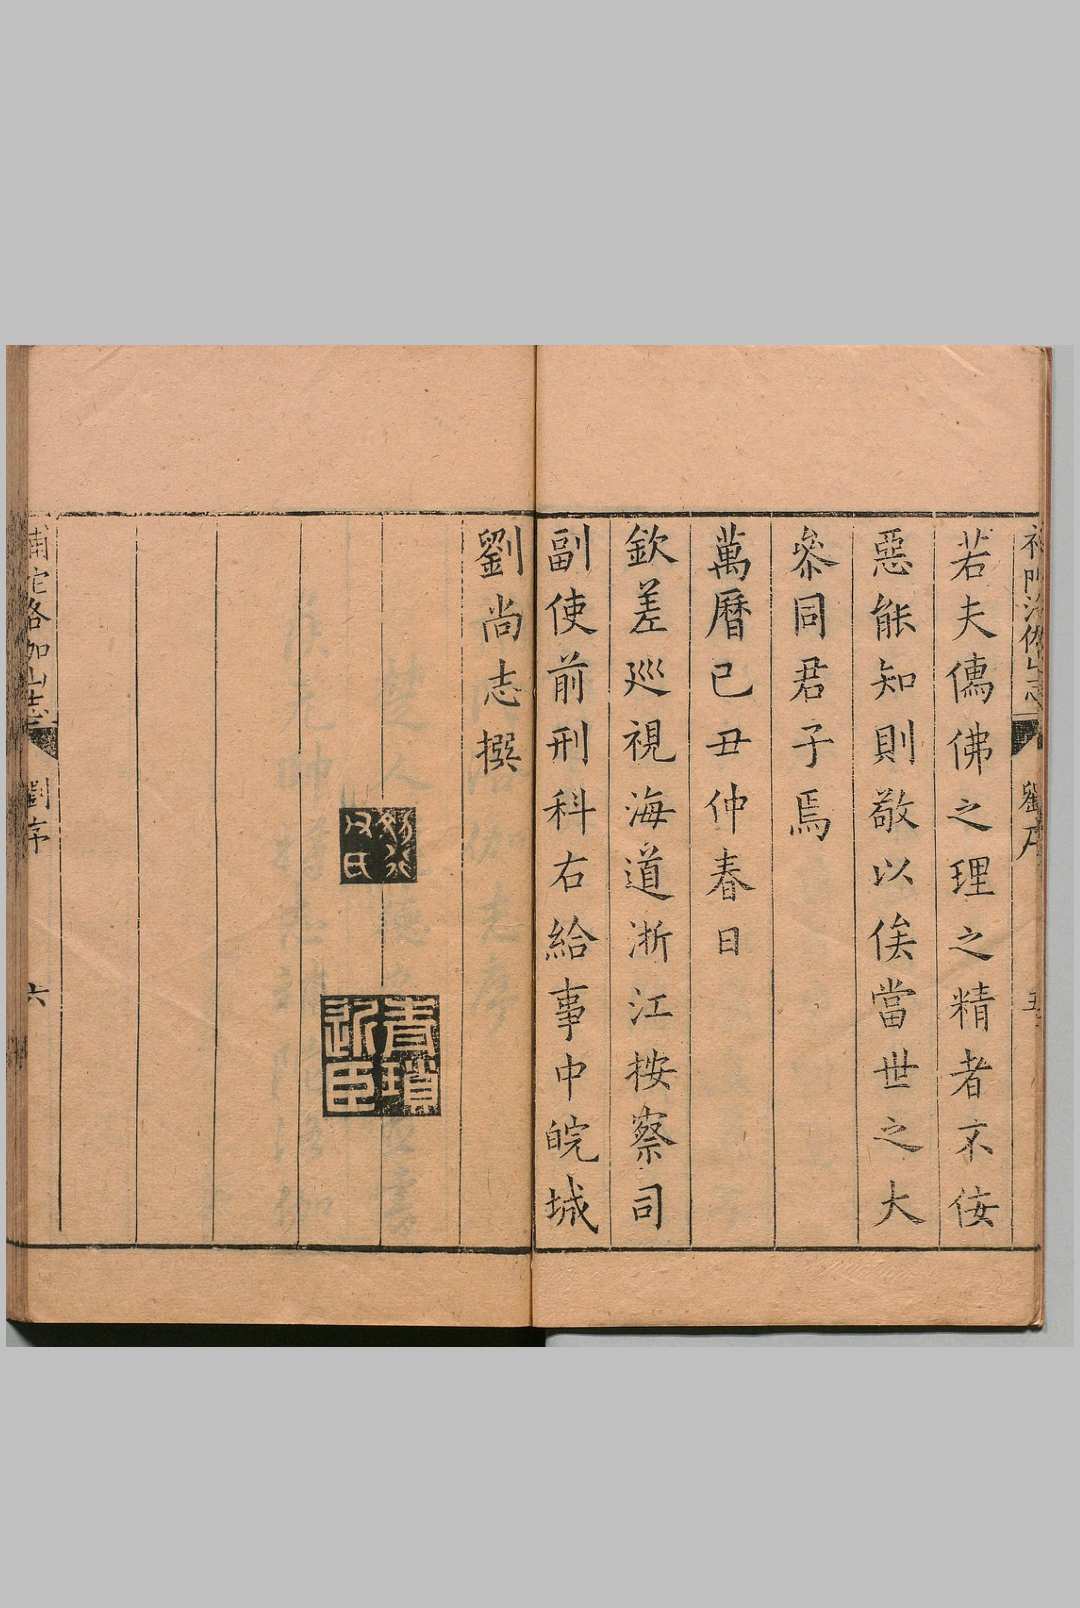 若夫僑佛之理之精者不佞
惡能知則敬以俟當世之大
叅同君子焉
萬曆己丑仲春日
欽差巡視海道浙江按察司
副使前刑科右給事中皖城
劉尚志撰
青瑣近臣
補陀洛伽山志
劉序
六